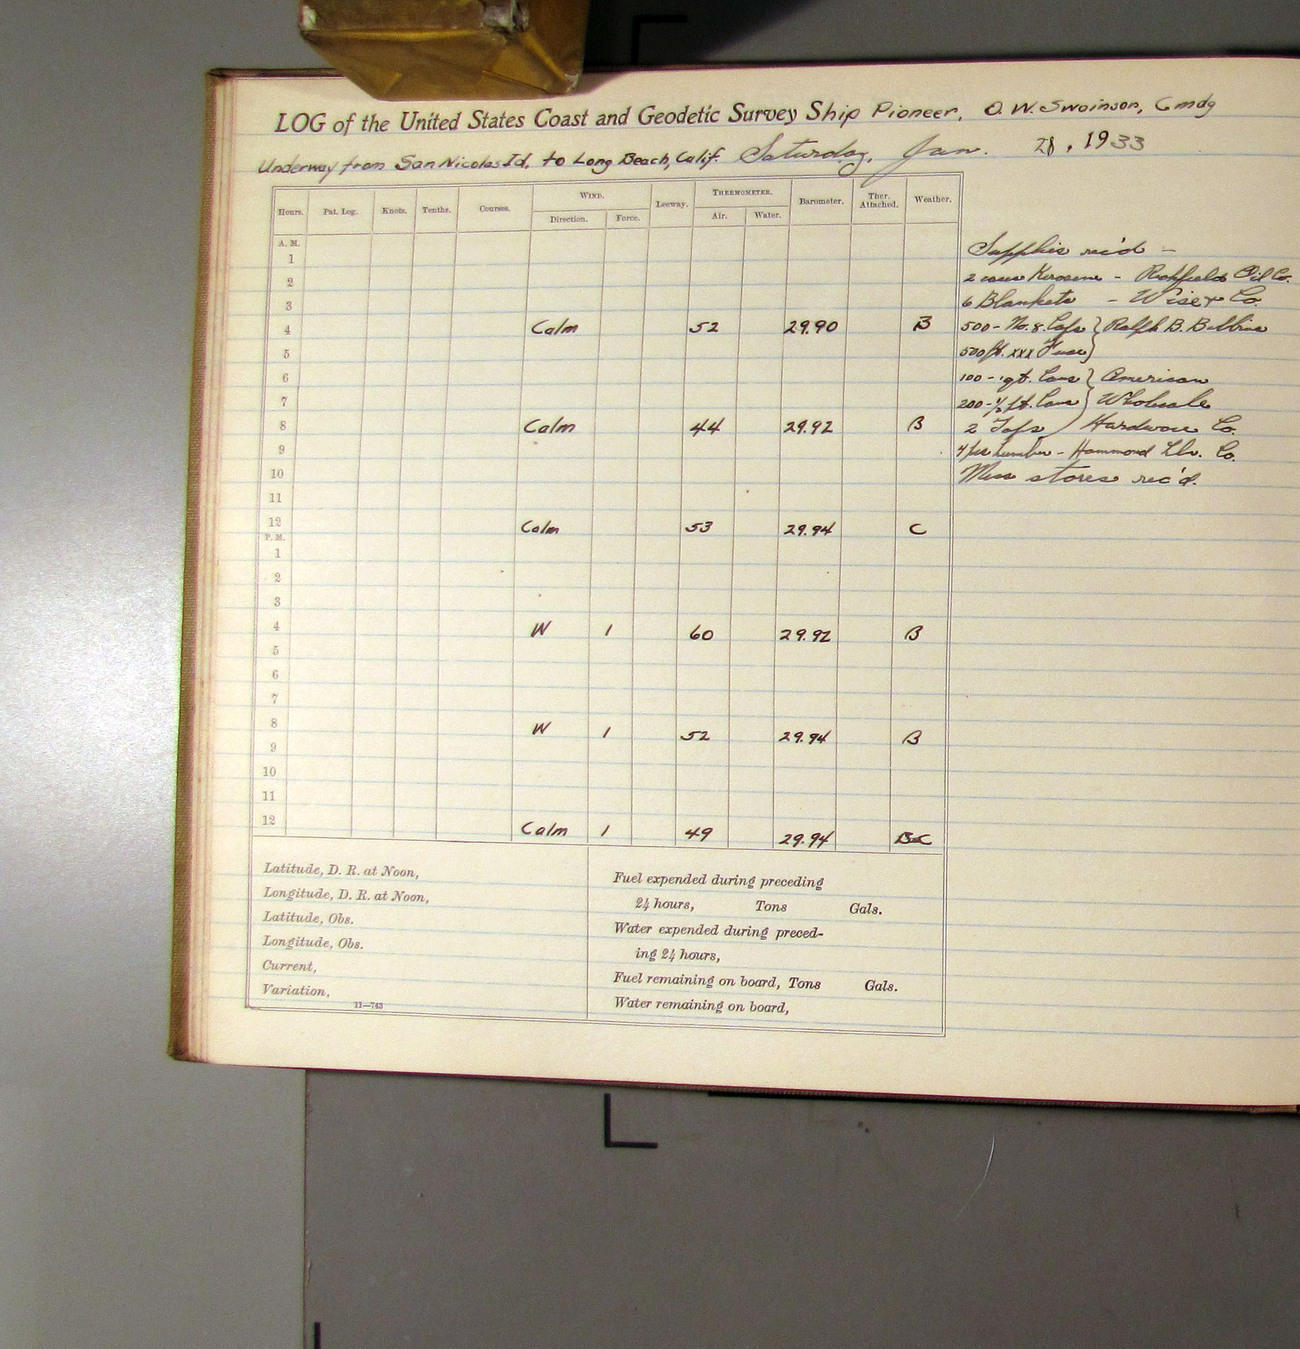 LOG of the United States Coast and Geodetic Survey Ship Pioneer, O. W. Swainson, Cmdg
Underway from San Nicolas Id, to Long Beach, Calif. Saturday, Jan. 28, 1933
Hours. Pat. Log. Knots. Tenths. Courses. WIND. Leeway. THERMOMETER. Barometer. Ther. Attached. Weather.
Direction. Force. Air. Water.
A. M.
1
2
3
4 Calm 52 29.90 B
5
6
7
8 Calm 44 29.92 B
9
10
11
12 Calm 53 29.94 C
P. M.
1
2
3
4 W 1 60 29.92 B
5
6
7
8 W 1 52 29.94 B
9
10
11
12 Calm 1 49 29.94 BC
Supplies rec'd -
2 cases Kerosene - Richfield Oil Co.
6 Blankets - Co.
500 - No. 8. Caps } Ralph B.
500 ft. xxx Fuse }
100 - 1 qt. Cans } American
200 - Cans } Wholesale
2 Taps } Hardware Co.
4 pcs Lumber - Hammond Lbr. Co.
Mess stores rec'd.
Latitude, D. R. at Noon,
Longitude, D. R. at Noon,
Latitude, Obs.
Longitude, Obs.
Current,
Variation,
11—743
Fuel expended during preceding
24 hours, Tons Gals.
Water expended during preced-
ing 24 hours,
Fuel remaining on board, Tons Gals.
Water remaining on board,